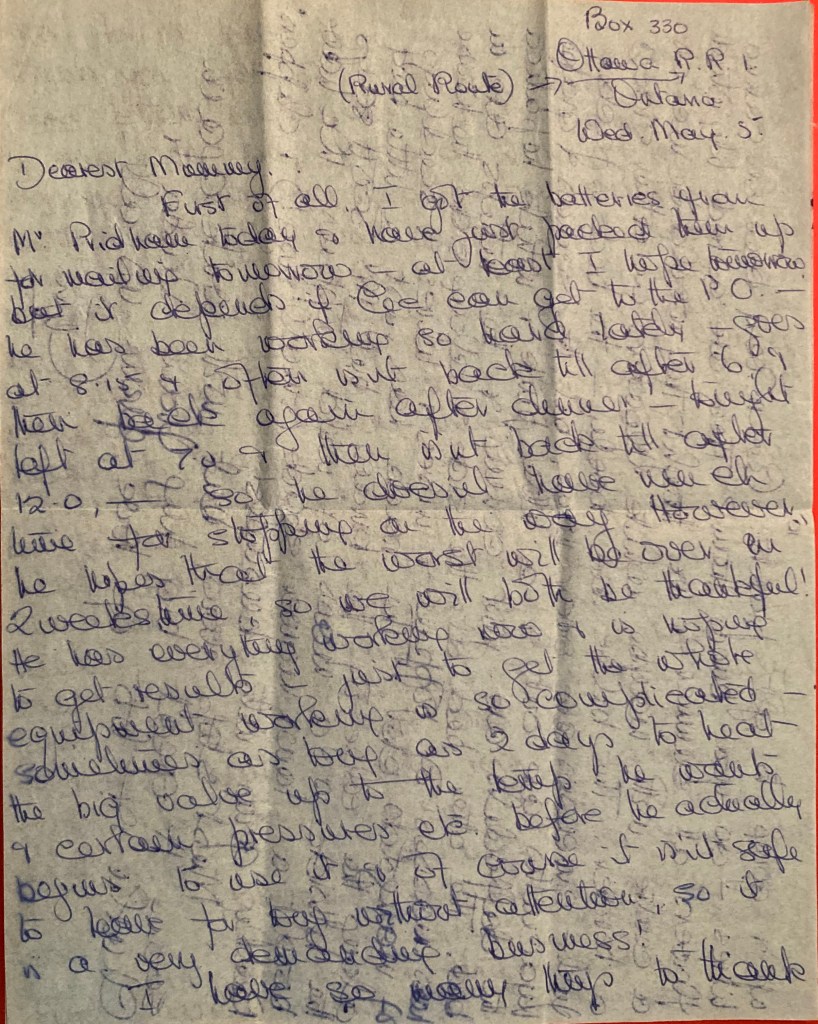 Box 330
Ottawa R.R. 1.
(Rural Route) →
Ontario
Wed. May. 5.
Dearest Mummy.
First of all, I got the batteries from
Mr Pridham today & have just packed them up
for mailing tomorrow – at least I hope tomorrow
but it depends if can get to the P.O. –
he has been working so hard lately – goes
at 8.15 & often isn't back till after 6 &
then back again after dinner – tonight
left at 7. & then isn't back till after
12.0, – so he doesn't have much
time for shopping on the way. However,
he hopes that the worst will be over in
2 weeks time so we will both be thankful!
He has everything working now & is hoping
to get results – just to get the whole
equipment working is so complicated –
sometimes as long as 2 days to heat
the big valve up to the temp. he wants
& certain pressures etc. before he actually
begins to use it & of course it isn't safe
to leave for long without attention, so it
is a very demanding business!
I have so many things to thank